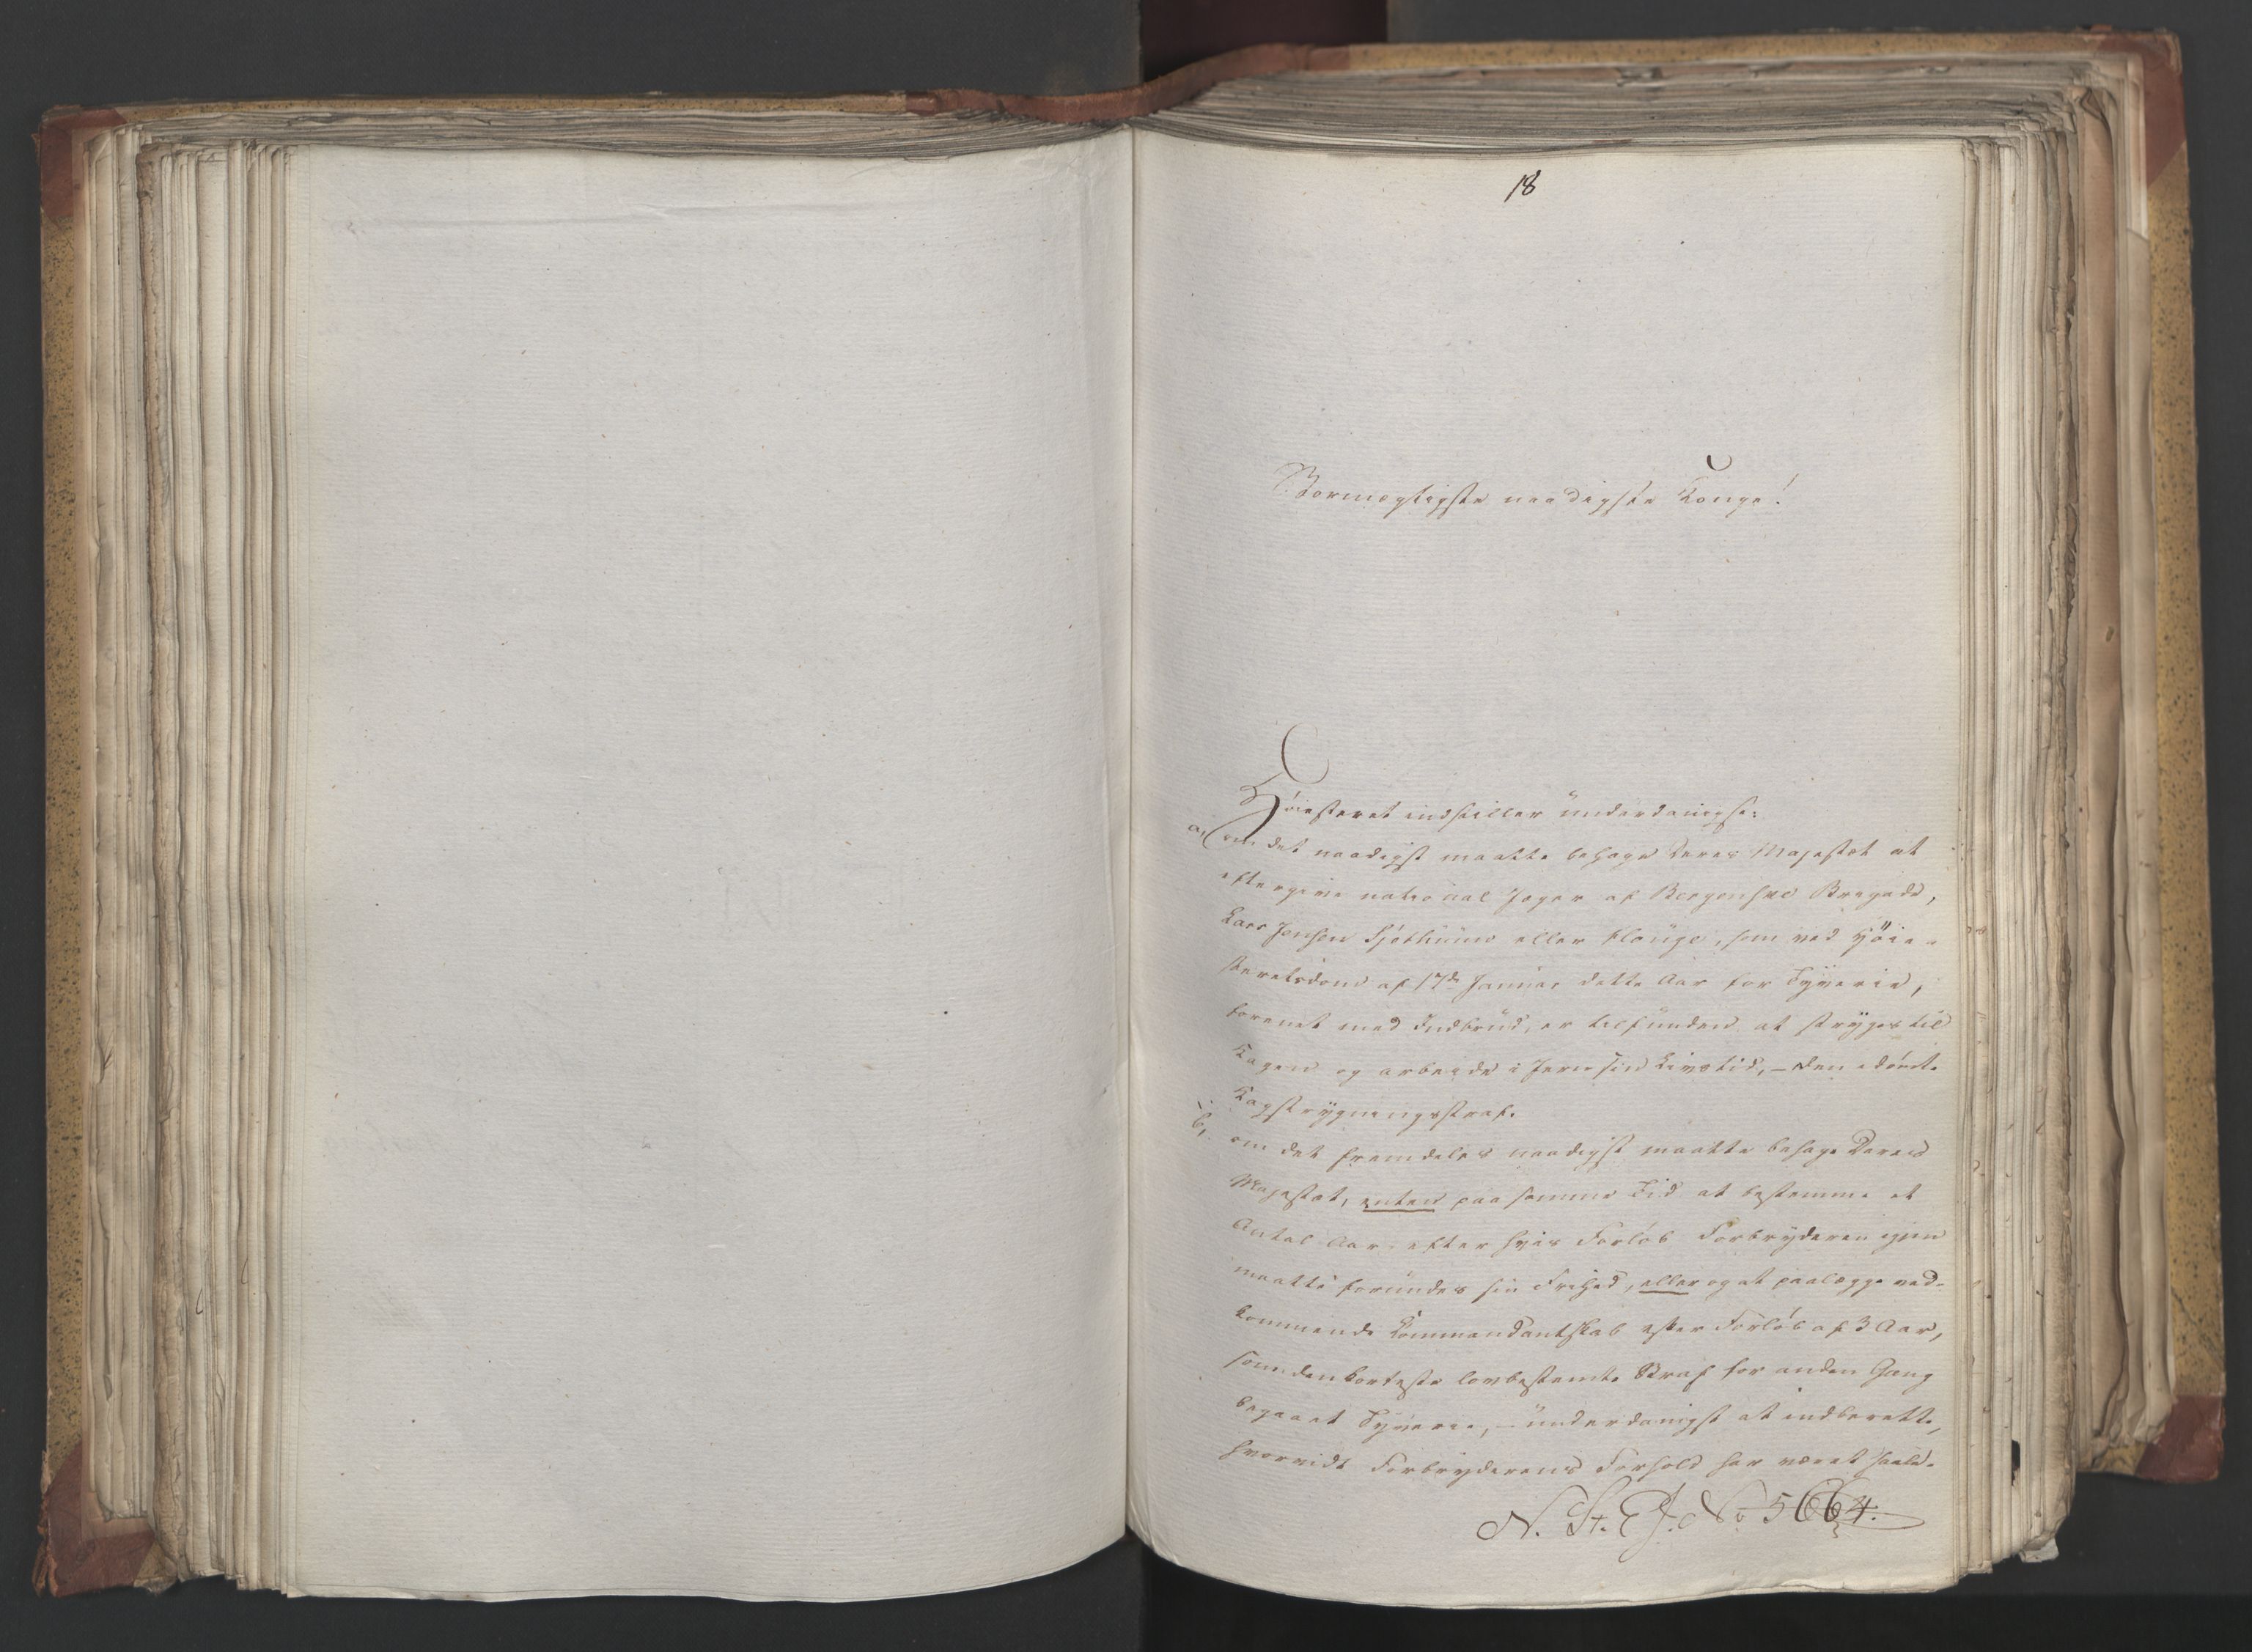 18
Stormægtigste naadigste Konge!
Höiesteret indstiller underdanigst:
a, om det naadigst maatte behage Deres Majestæt at
eftergive national Jæger af Bergenske Brigade,
Lars Jensen eller Flauge, som ved Höie-
steretsdom af 17de Januar dette Aar for Tyverie,
forenet med Indbrud, er tilfunden at stryges til
Kagen og arbeide i Jern sin Livstid, – den idömte
Kagstrygningsstraf.
b, om det fremdeles naadigst maatte behage Deres
Majestæt, enten paa samme Tid at bestemme et
Antal Aar, efter hvis Forlöb Forbryderen igjen
maatte forundes sin Frihed, eller og at paalægge ved-
kommende Kommandantskab efter Forlöb af 3 Aar,
som den korteste lovbestemte Straf for anden Gang
begaaet Tyverie, – underdanigst at indberette,
hvorvidt Forbryderens Forhold har været saale-
N. St. J. No 5664.